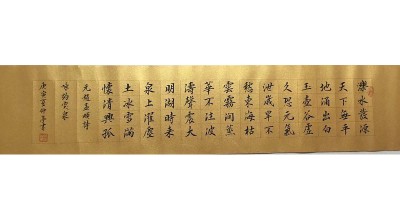 濼水發源
天下無平
地涌出白
玉壺谷虛
久恐元氣
泄歲旱不
愁東海枯
雲霧潤蒸
華不注波
濤聲震大
明湖時來
泉上濯塵
土冰雪滿
懷清興孤
元趙孟頫詩
咏趵突泉
庚寅夏